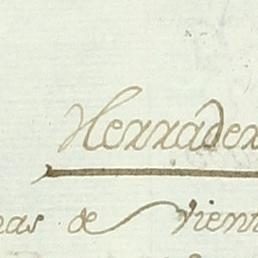 Herrader
eas de vient